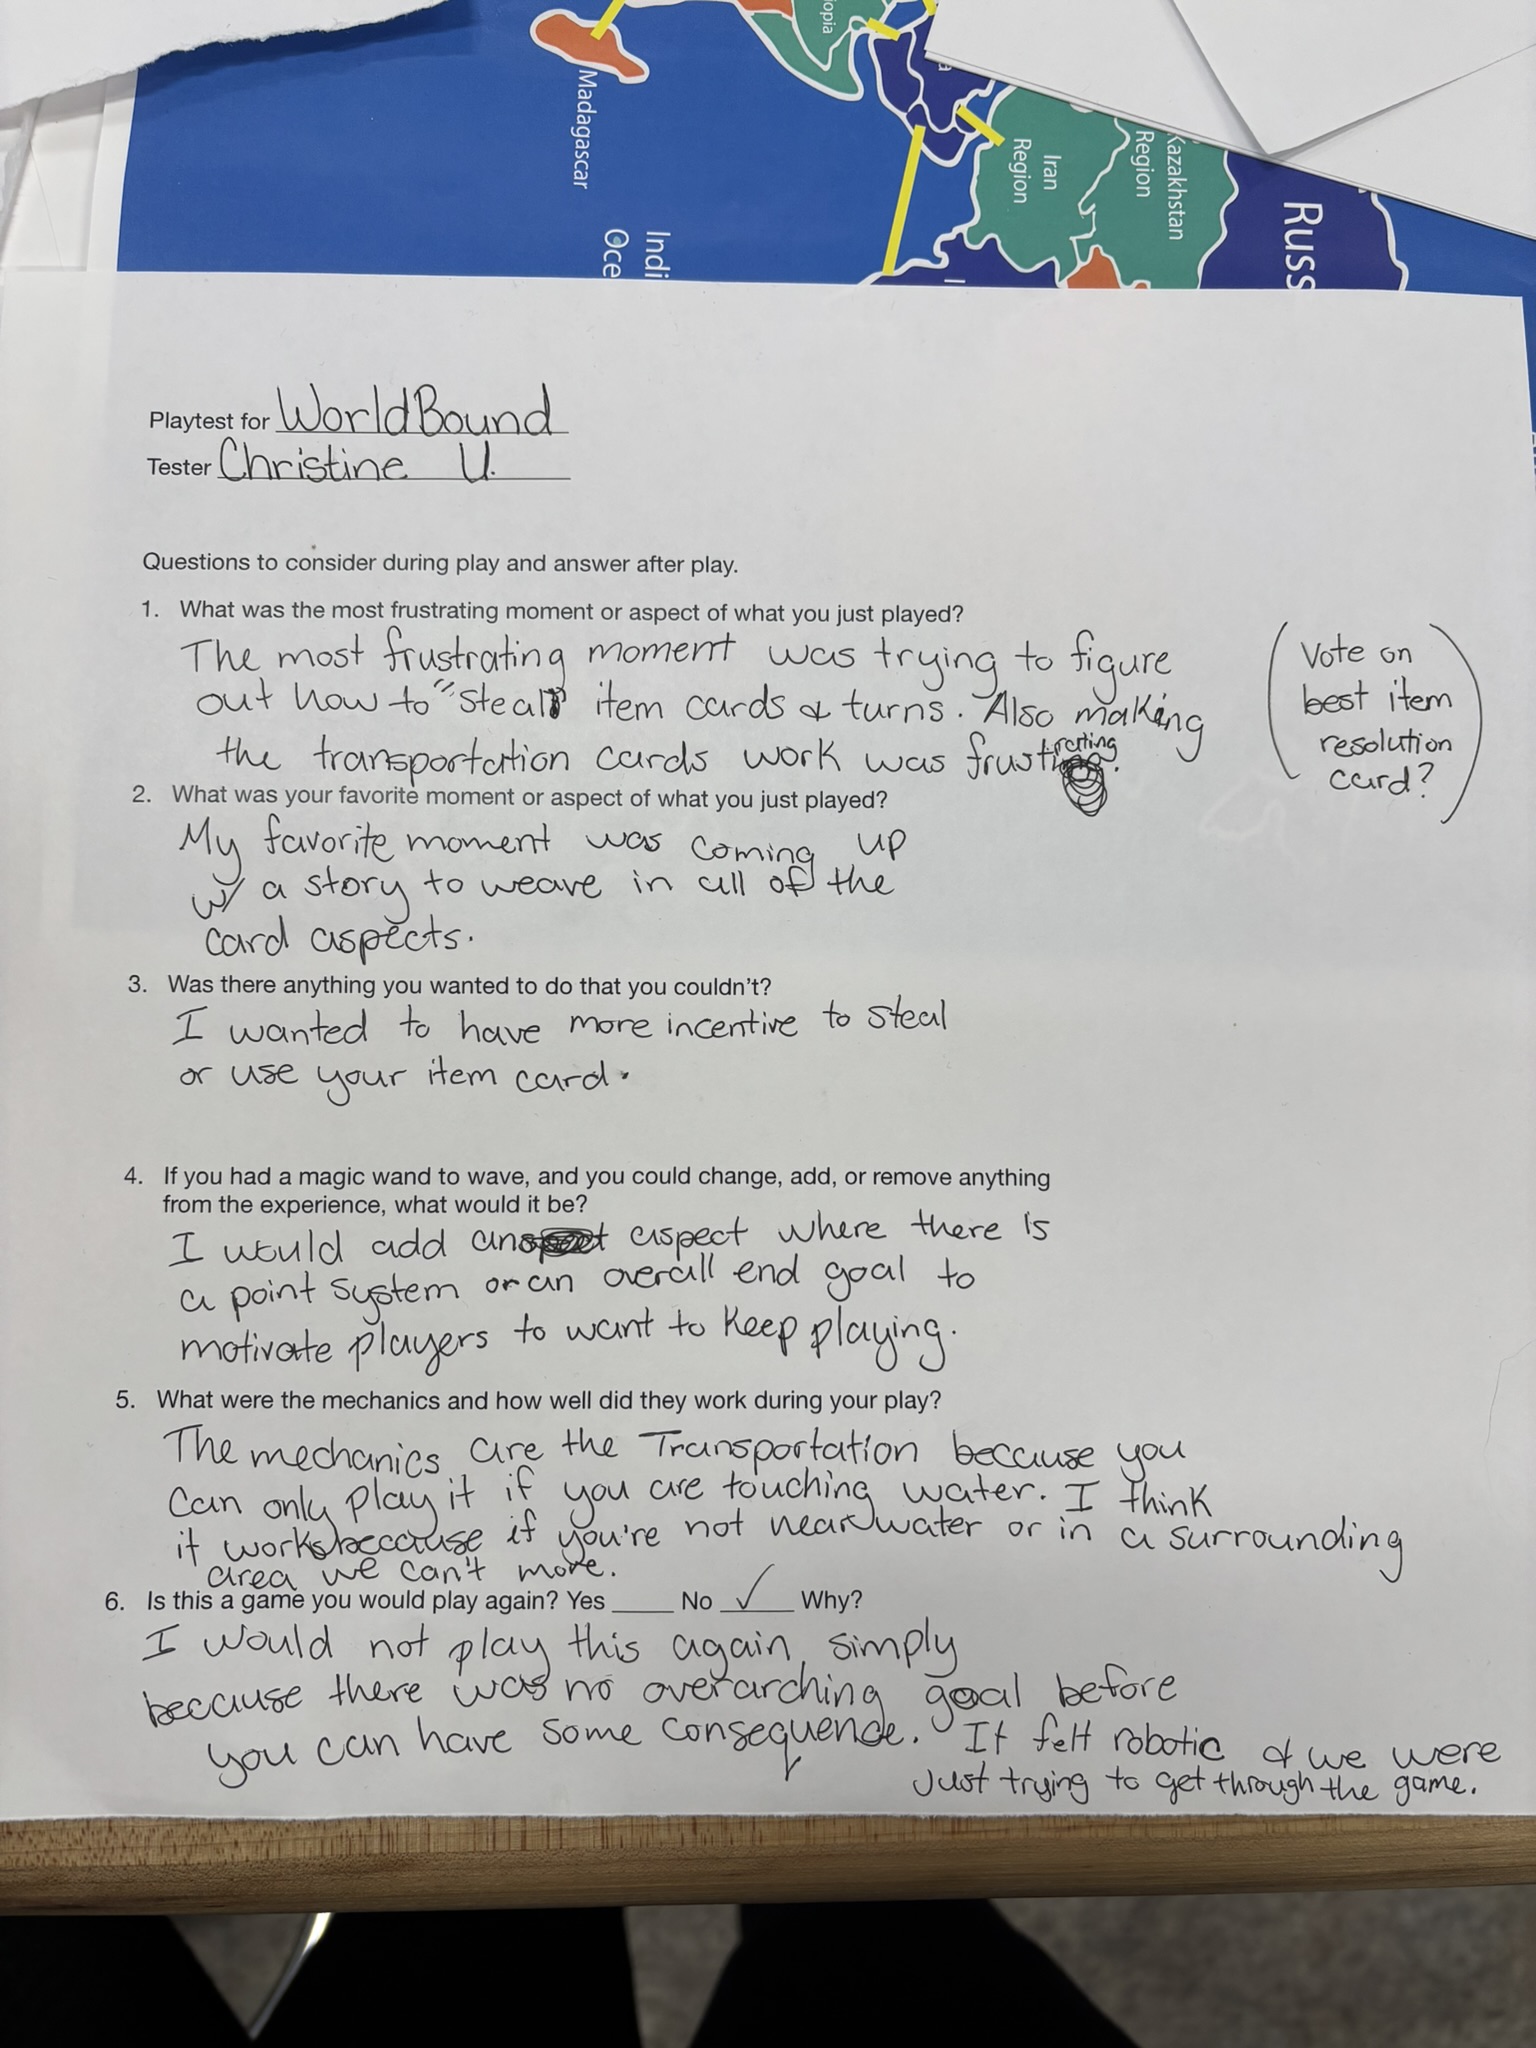 iopia
a
Madagascar
Iran
Region
Kazakhstan
Region
Russ
Indi
Oce
I
Playtest for WorldBound
Tester Christine U.
Questions to consider during play and answer after play.
1. What was the most frustrating moment or aspect of what you just played?
The most frustrating moment was trying to figure
out how to "steal" item cards & turns. Also making
the transportation cards work was frustrating.
(Vote on
best item
resolution
card?)
2. What was your favorite moment or aspect of what you just played?
My favorite moment was coming up
w/ a story to weave in all of the
card aspects.
3. Was there anything you wanted to do that you couldn't?
I wanted to have more incentive to steal
or use your item card.
4. If you had a magic wand to wave, and you could change, add, or remove anything
from the experience, what would it be?
I would add an aspect where there is
a point system or an overall end goal to
motivate players to want to keep playing.
5. What were the mechanics and how well did they work during your play?
The mechanics are the Transportation because you
can only play it if you are touching water. I think
it works because if you're not near water or in a surrounding
area we can't more.
6. Is this a game you would play again? Yes ____ No ✓ Why?
I would not play this again, simply
because there was no overarching goal before
you can have some consequence. It felt robotic & we were
just trying to get through the game.